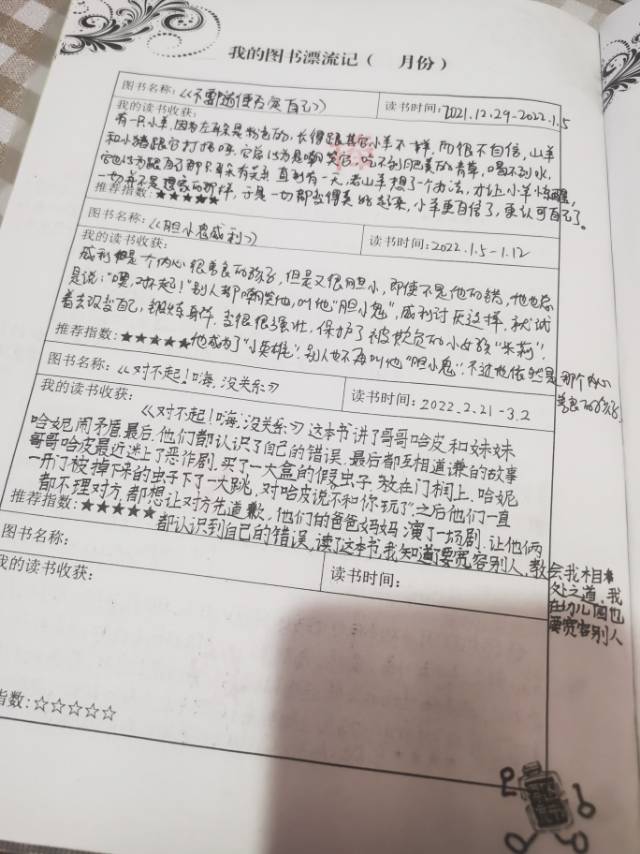 我的图书漂流记（ 月份）
图书名称：《不要随便否定自己》
读书时间：2021.12.29-2022.1.5
我的读书收获：
有一只小羊，因为左耳朵是粉色的，长得跟其它小羊不一样，所以很不自信，山羊
和小猪跟它打招呼，它总以为是嘲笑它，吃不到肥美的青草，喝不到水，
它以为跟自己那只耳朵有关系 直到有一天，老山羊想了个办法，才让小羊
一切并不是想象的那样，于是一切都变得美好起来，小羊更自信了，更认可自己了。
推荐指数：★★★★★
图书名称：《胆小鬼威利》
读书时间：2022.1.5-1.12
我的读书收获：
威利是个内心很善良的孩子，但是又很胆小，即使不是他的错，他也总
是说：“噢，对不起！”别人都嘲笑他，叫他“胆小鬼”，威利讨厌这样，就试
着去改变自己，锻炼身体，变得很强壮，保护了被欺负的小女孩“米莉”，
推荐指数：★★★★★他成为了“小英雄”，别人也不再叫他“胆小鬼”，不过他依然是那个内心
善良的孩子。
图书名称：《对不起！嗨，没关系》
读书时间：2022.2.21-3.2
我的读书收获：
《对不起！嗨，没关系》这本书讲了哥哥哈皮和妹妹
哈妮闹矛盾，最后，他们都认识了自己的错误，最后都互相道谦的故事
哥哥哈皮最近迷上了恶作剧，买了一大盒的假虫子，放在门框上，哈妮
一开门被掉下来的虫子下了一大跳，对哈皮说不和你玩了”之后他们一直
都不理对方，都想让对方先道歉，他们的爸爸妈妈演了一场剧，让他俩
推荐指数：★★★★★都认识到自己的错误，读了这本书，我知道了要宽容别人，教会我相
处之道，我
在幼儿园也
要宽容别人
图书名称：
读书时间：
我的读书收获：
指数：☆☆☆☆☆